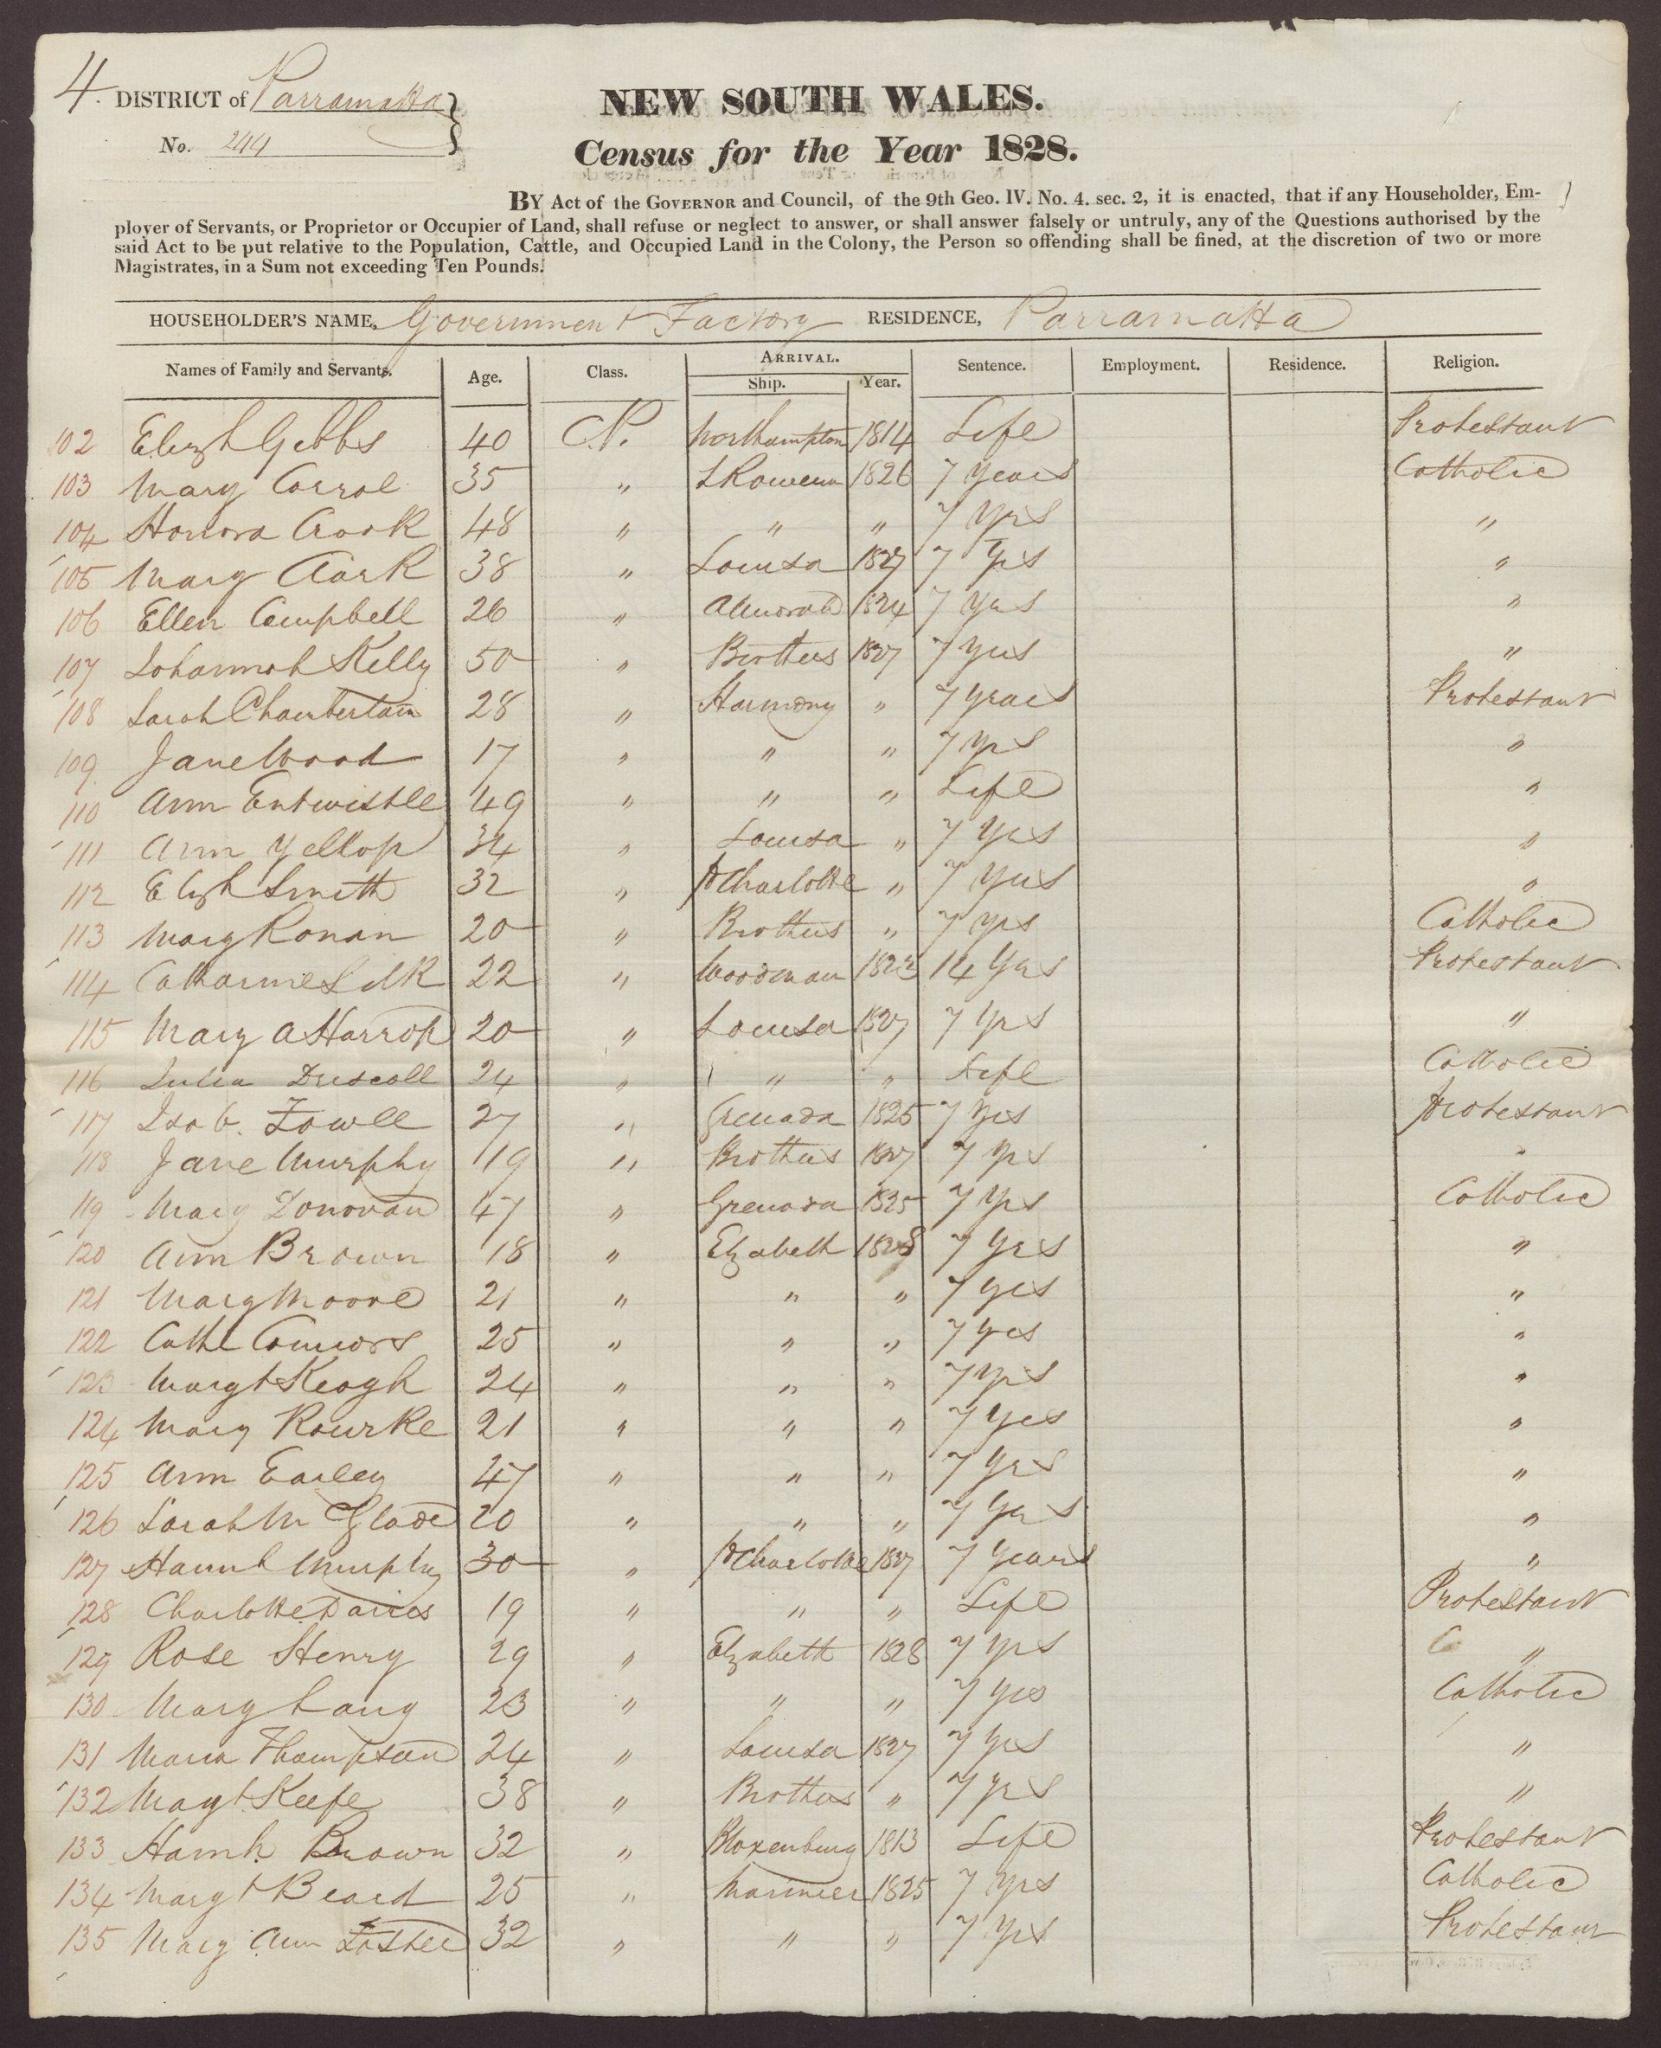 4. DISTRICT of Parramatta
No. 244
NEW SOUTH WALES.
Census for the Year 1828.
BY Act of the GOVERNOR and Council, of the 9th Geo. IV. No. 4. sec. 2, it is enacted, that if any Householder, Em-
ployer of Servants, or Proprietor or Occupier of Land, shall refuse or neglect to answer, or shall answer falsely or untruly, any of the Questions authorised by the
said Act to be put relative to the Population, Cattle, and Occupied Land in the Colony, the Person so offending shall be fined, at the discretion of two or more
Magistrates, in a Sum not exceeding Ten Pounds.
HOUSEHOLDER'S NAME, Government Factory RESIDENCE, Parramatta
Names of Family and Servants. Age. Class. ARRIVAL. Ship. Year. Sentence. Employment. Residence. Religion.
102 Elizh Gibbs 40 C.P. Northampton 1814 Life Protestant
103 Mary Corral 35 " 1826 7 Years Catholic
104 Honora Crook 48 " " " 7 Yrs "
105 Mary Clark 38 " Louisa 1827 7 Yrs "
106 Ellen Campbell 26 " Almorah 1824 7 Yrs "
107 Johannah Kelly 50 " Brothers 1827 7 Yrs "
108 Sarah Chamberlain 28 " Harmony " 7 years Protestant
109 Jane Wood 17 " " " 7 Yrs "
110 Ann Entwistle 49 " " " Life "
111 Ann Yellop 34 " Louisa " 7 Yrs "
112 Elizh Smith 32 " Charlotte " 7 Yrs "
113 Mary Ronan 20 " Brothers " 7 Yrs Catholic
114 Catharine Silk 22 " Woodman 1823 14 Yrs Protestant
115 Mary A Harrop 20 " Louisa 1827 7 Yrs "
116 Julia Driscoll 24 " " " Life Catholic
117 Isab. Fowle 27 " Grenada 1825 7 Yrs Protestant
118 Jane Murphy 19 " Brothers 1827 7 Yrs "
119 Mary Donovan 47 " Grenada 1825 7 Yrs Catholic
120 Ann Brown 18 " Elizabeth 1828 7 Yrs "
121 Mary Moore 21 " " " 7 Yrs "
122 Cathe Connors 25 " " " 7 Yrs "
123 Margt Keogh 24 " " " 7 Yrs "
124 Mary Rourke 21 " " " 7 Yrs "
125 Ann Earley 47 " " " 7 Yrs "
126 Sarah Mc Glade 20 " " " 7 Yrs "
127 Hannh Murphy 30 " Charlotte 1827 7 Years "
128 Charlotte Davies 19 " " " Life Protestant
129 Rose Henry 29 " Elizabeth 1828 7 Yrs "
130 Mary Lang 23 " " " 7 Yrs Catholic
131 Maria Thompson 24 " Louisa 1827 7 Yrs "
132 Margt Keefe 38 " Brothers " 7 Yrs "
133 Hannh. Brown 32 " Bloxenburg 1813 Life Protestant
134 Margt Beard 25 " Mariner 1825 7 Yrs Catholic
135 Mary Ann Foster 32 " " " 7 Yrs Protestant